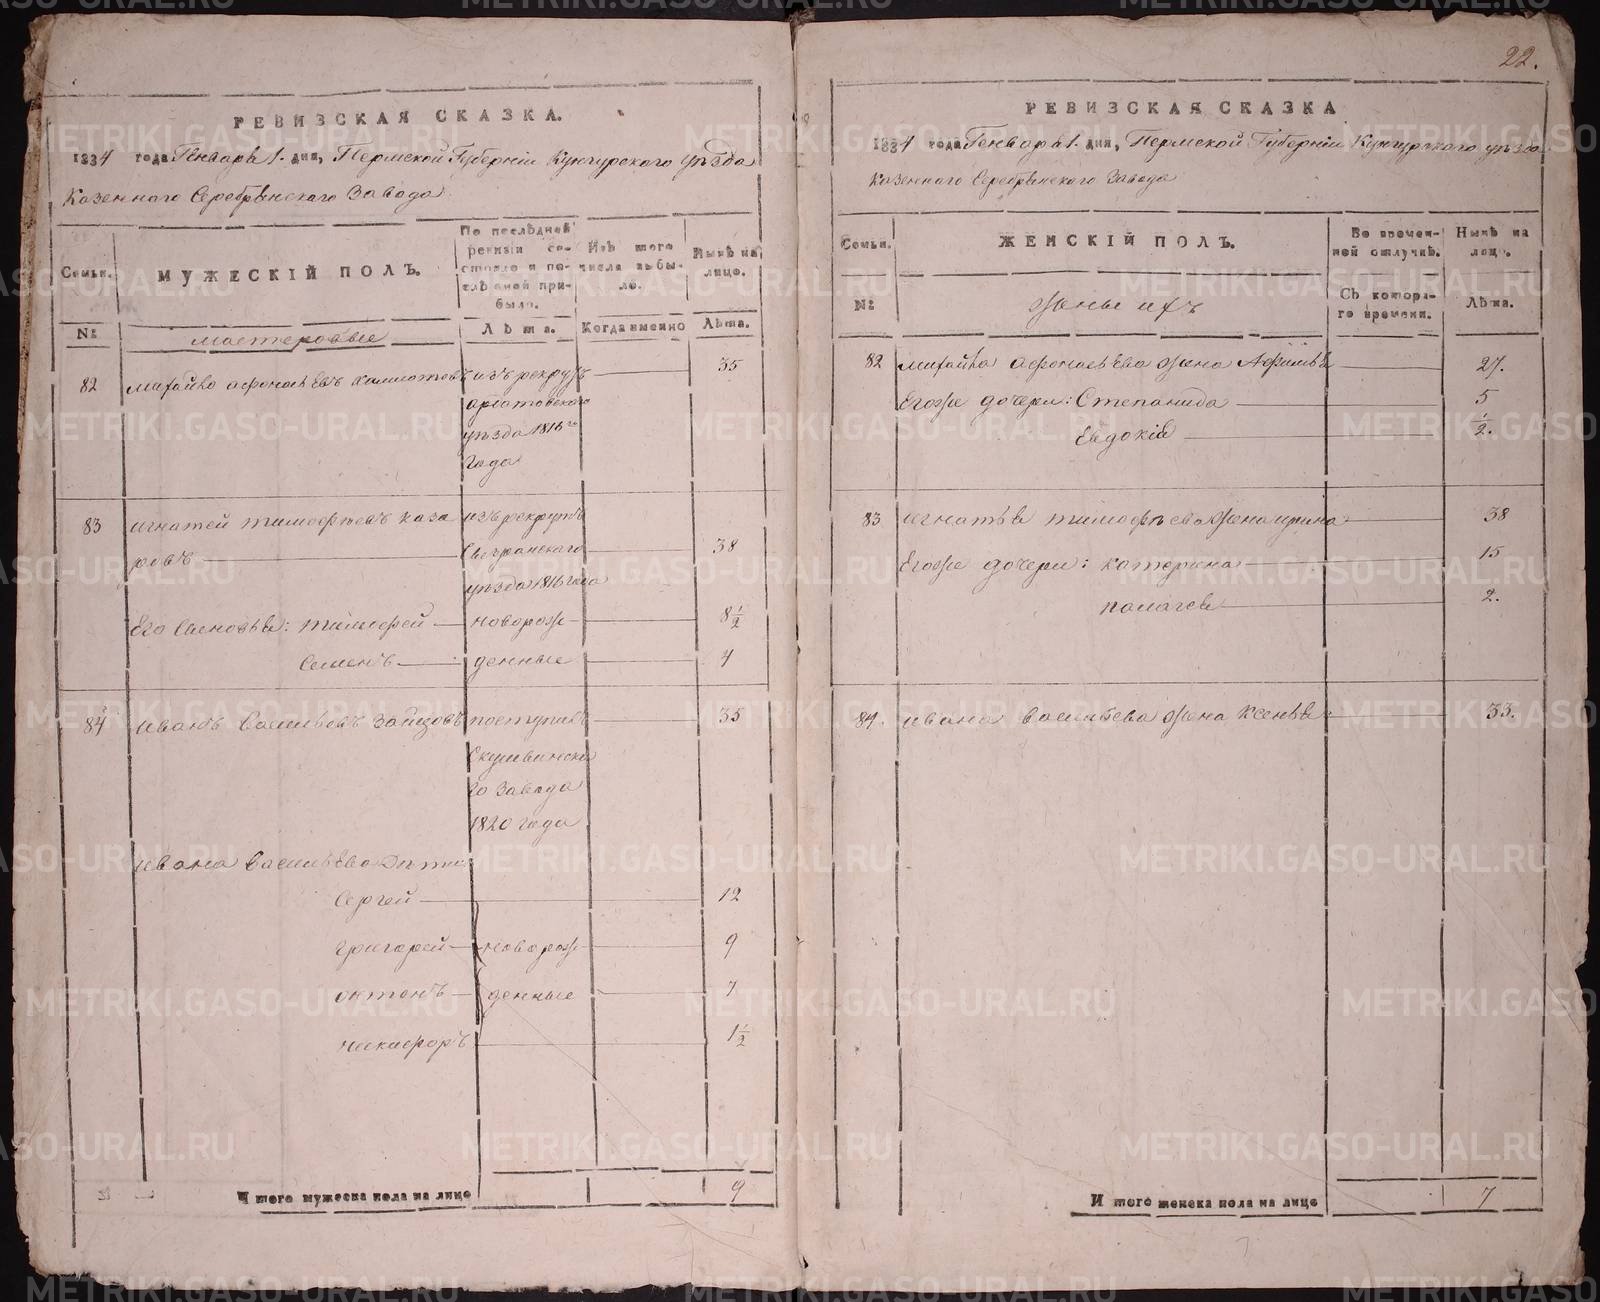 22.
РЕВИЗСКАЯ СКАЗКА.
1834 года Генваря 1. дня, Пермской Губернiи Кунгурского уѣзда
Казенного Серебрянского Завода
Семьи.
МУЖЕСКIЙ ПОЛЪ.
По послѣдней ревизiи состояло и послѣ оной прибыло.
Изъ того числа выбыло.
Нынѣ на лицо.
№
мастеровые
Лѣта.
Когда именно
Лѣта.
82 михайло афонасьевъ изъ рекрутъ 35
уѣзда 1816го
года
83 игнатей тимофѣевъ каза изъ рекрутъ
ровъ 38
уѣзда 1816 года
Его сыновья: тимофей новорож 8 1/2
Семенъ денные 4
84 иванъ Васильевъ Зайцовъ поступилъ 35
Скушвинска
го завода
1820 года
ивана васильева дѣти
Сергей 12
григорей новорож 9
октонъ денные 7
некифоръ 1 1/2
Итого мужеска пола на лицо 9
РЕВИЗСКАЯ СКАЗКА
1834 года Генваря 1. дня, Пермской Губернiи Кунгурского уѣзда
Казенного Серебрянского Завода
Семьи.
ЖЕНСКIЙ ПОЛЪ.
Во временной отлучкѣ.
Нынѣ на лицо.
№
жены ихъ
Съ которого времени.
Лѣта.
82 михайла афонасьева жена Афимья 27.
Егоже дочери: Степанида 5
Евдокiя 1/2.
83 игнатья тимофѣева жена ирина 38
Егоже дочери: катерина 15
палагея 2.
84. ивана васильева жена Ксенья 33.
Итого женска пола на лицо 7
METRIKI.GASO-URAL.RU